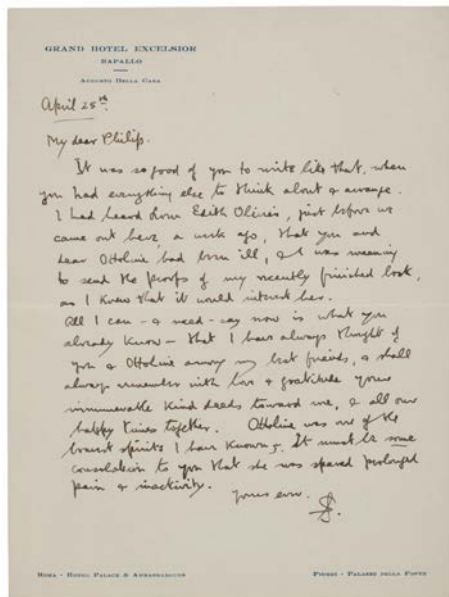 GRAND HOTEL EXCELSIOR
RAPALLO
AUGUSTO DELLA CASA
April 25th.
My dear Philip.
It was so good of you to write like that, when
you had everything else to think about & arrange.
I had heard from Edith Olivier, just before we
came out here, a week ago, that you and
dear Ottoline had been ill, & I was meaning
to send the proofs of my recently finished book,
as I knew that it would interest her.
All I can - & need - say now is what you
already know - that I have always thought of
you & Ottoline among my best friends, & shall
always remember with love & gratitude your
innumerable kind deeds toward me, & all our
happy times together. Ottoline was one of the
bravest spirits I have known. It must be some
consolation to you that she was spared prolonged
pain & inactivity.
Yours ever.
SS.
ROMA - HOTEL PALACE & AMBASCIATORI
FIUGGI - PALAZZO DELLA FONTE